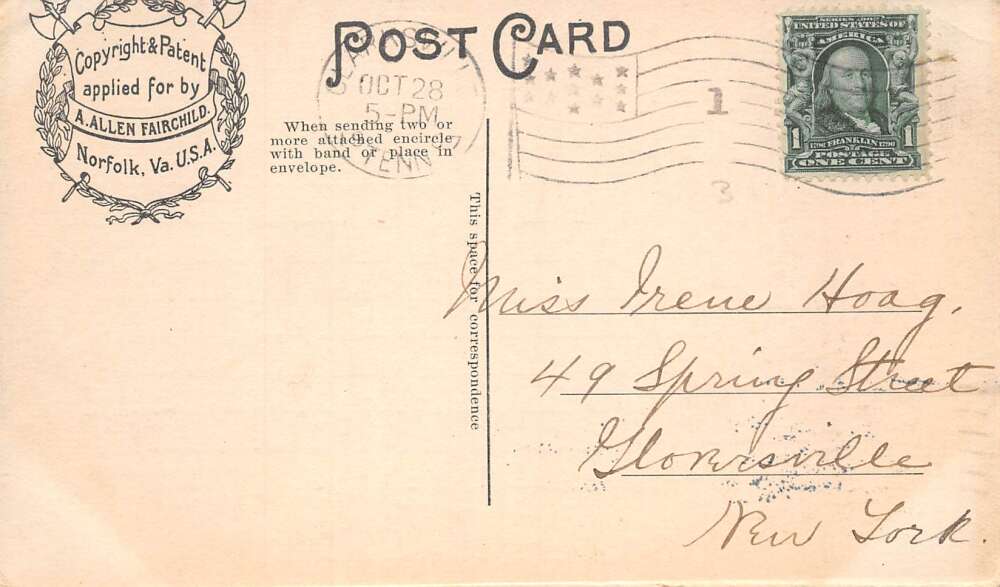 Copyright & Patent
applied for by
A. ALLEN FAIRCHILD.
Norfolk, Va. U.S.A.
POST CARD
OCT 28
5-PM
TENN
1
3
SERIES 1902
UNITED STATES OF
AMERICA
1 1
1706 FRANKLIN 1790
POSTAGE
ONE CENT
When sending two or
more attached encircle
with band or place in
envelope.
This space for correspondence
Miss Irene Hoag.
49 Spring Street
Gloversville
New York.